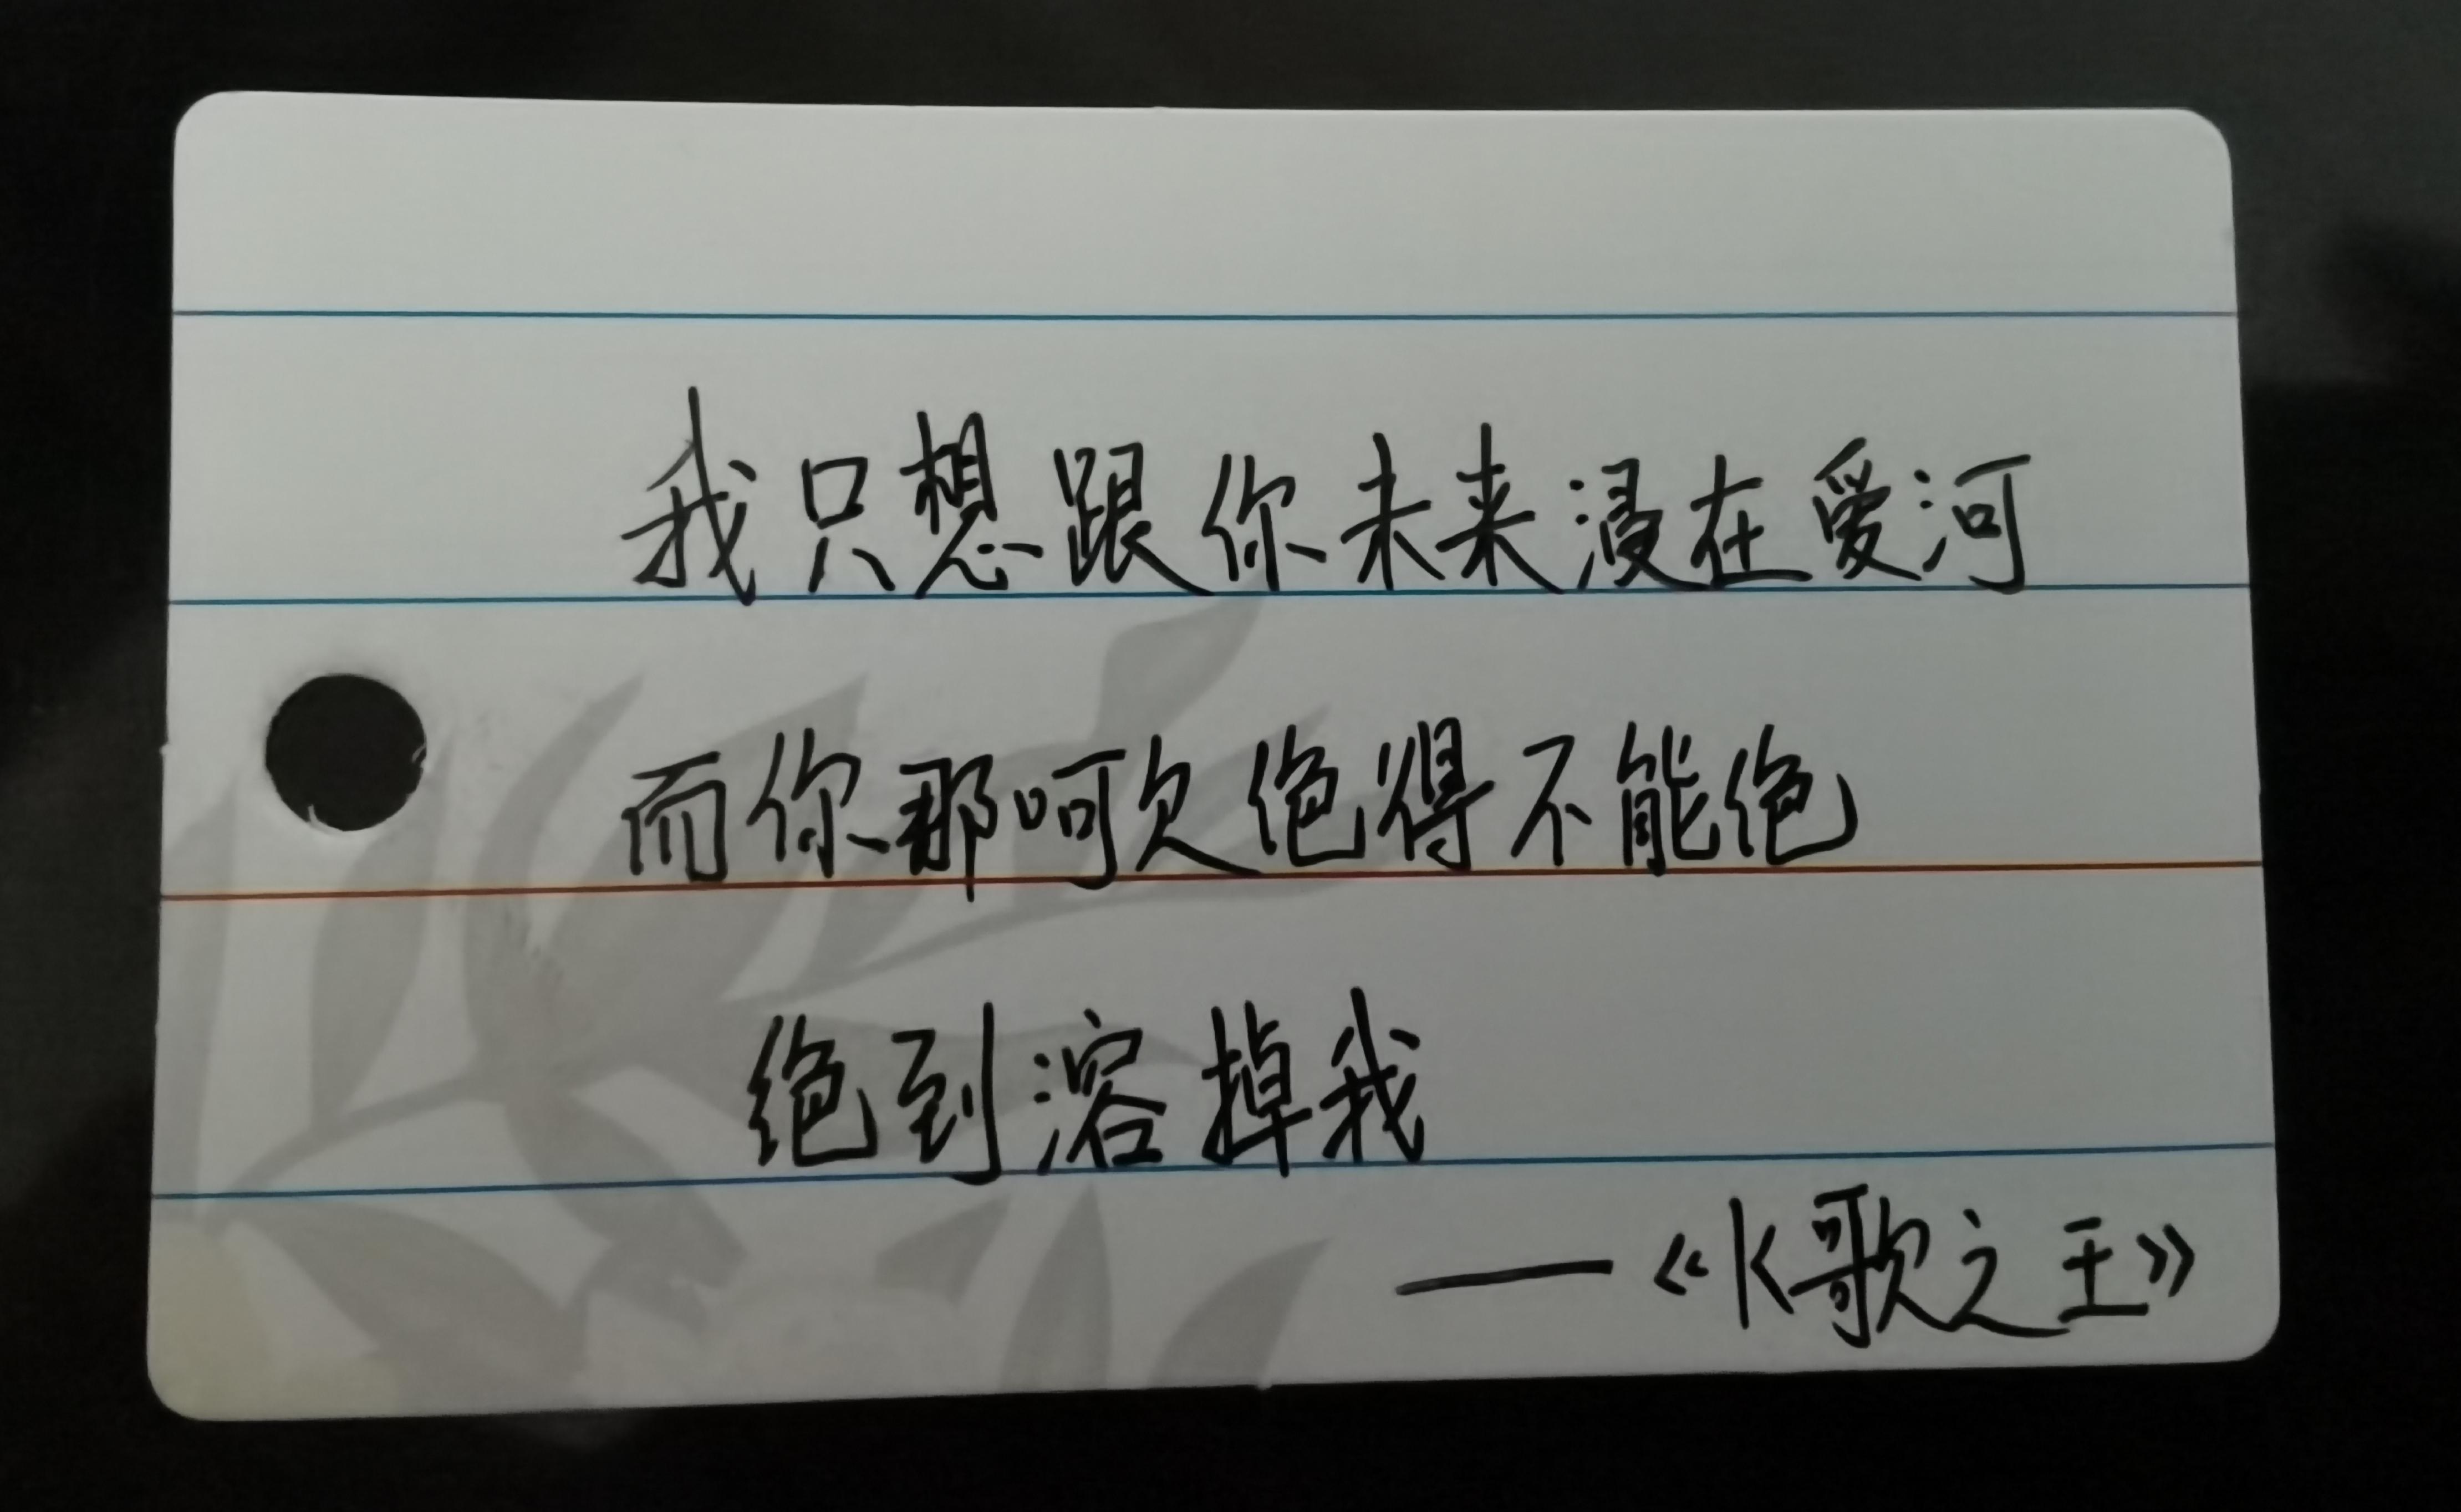 我只想跟你未来浸在爱河
而你那呵欠绝得不能绝
绝到溶掉我
——《K歌之王》